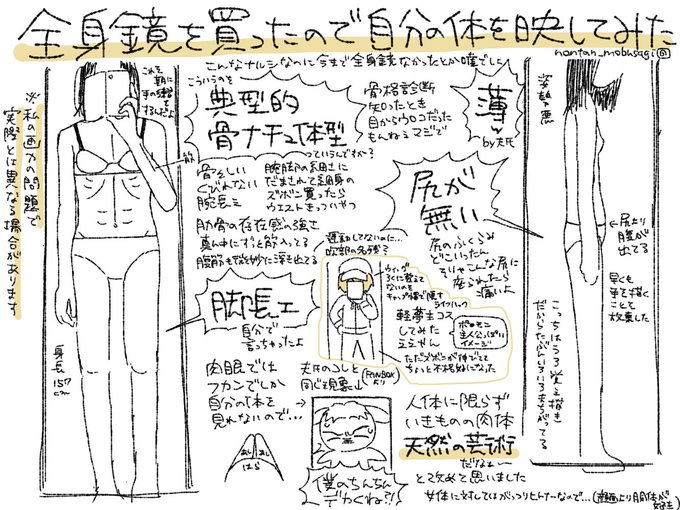 全身鏡を買ったので自分の体を映してみた
nontan_mobusagi
こんなナルシなのに今まで全身鏡なかったとか嘘でしょ
これを期に
手の練習を
するんだよ
※私の画力の問題で
実際とは異なる場合があります
こういうのを
典型的
骨ナチュ体型
っていうんですか?
骨格診断
知ったとき
目からウロコだった
もんねぇマジで
薄っ
by夫氏
姿勢悪
骨々しい
くびれない
腕長ェ
腕脚の細さに
だまされて細身の
ズボン買ったら
ウエストきっついやつ
肋骨の存在感の強さ
真ん中にずっと筋入ってる
腹筋も微妙に浮き出てる
運動してないのに…
吹部の名残?
尻が
無い
尻のふくらみ
どこいったん
そりゃこんな尻に
座られたら
痛いよ
←尻より
腹が
出てる
早くも
手を描く
ことを
放棄した
こっちはうろ覚え描き
だからたぶんいろいろまちがってる
脚長ェ
自分で
言っちゃったよ
身長
157
cm
ウィッグ
ろくに整えて
ないのを
キャップ帽で隠す
ライフハック
軽率主コス
してみた
ええやん
ポケモン
主人公っぽい
イメージ
ただズボンが神でてて
ちょっと不格好になった
肉眼では
フカンでしか
自分の体を
見れないので…
あし
あし
はら
夫氏のコレと
同じ現象
(FANBOXより)
僕のちんちん
デカくね?!
人体に限らず
いきものの肉体
天然の芸術
だなぁ~
と改めて思いました
女体に対してはがっつりヒんたーなので…